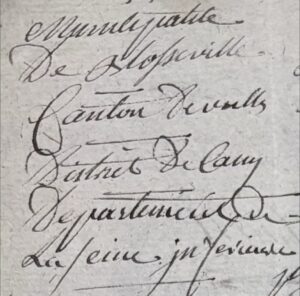 Municipalité
De Blosseville
Canton De veulles
District De Cany
Departement de
La Seine inferieure